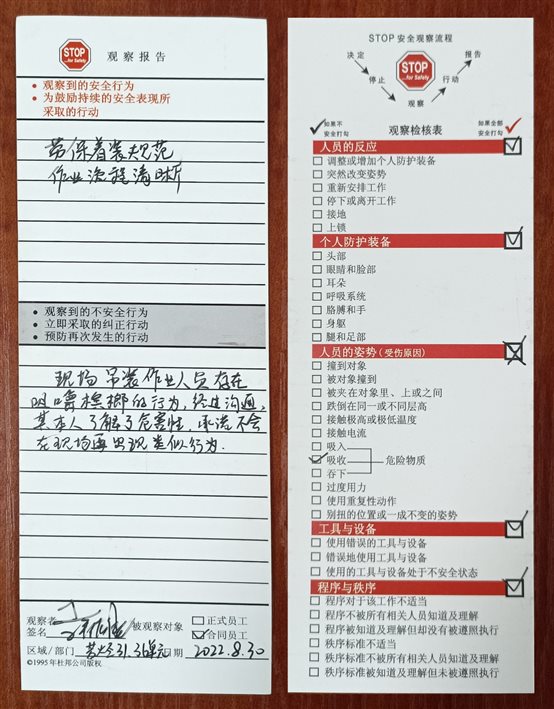 STOP
...for Safety
观察报告
• 观察到的安全行为
• 为鼓励持续的安全表现所
采取的行动
劳保着装规范
作业流程清晰
• 观察到的不安全行为
• 立即采取的纠正行动
• 预防再次发生的行动
现场吊装作业人员存在
咀嚼槟榔的行为,经过沟通,
其本人了解了危害性,承诺不会
在现场再出现类似行为.
观察者
签名
被观察对象
正式员工
合同员工
区域/部门 31.36单元 日期 2022.8.30
©1995年杜邦公司版权
STOP 安全观察流程
决定
停止
观察
行动
报告
STOP
...for Safety
如果不
安全打勾
观察检核表
如果全部
安全打勾
人员的反应
调整或增加个人防护装备
突然改变姿势
重新安排工作
停下或离开工作
接地
上锁
个人防护装备
头部
眼睛和脸部
耳朵
呼吸系统
胳膊和手
身躯
腿和足部
人员的姿势(受伤原因)
撞到对象
被对象撞到
被夹在对象里、上或之间
跌倒在同一或不同层高
接触极高或极低温度
接触电流
吸入
吸收
危险物质
吞下
过度用力
使用重复性动作
别扭的位置或一成不变的姿势
工具与设备
使用错误的工具与设备
错误地使用工具与设备
使用的工具与设备处于不安全状态
程序与秩序
程序对于该工作不适当
程序不被所有相关人员知道及理解
程序被知道及理解但却没有被遵照执行
秩序标准不适当
秩序标准不被所有相关人员知道及理解
秩序标准被知道及理解但未被遵照执行